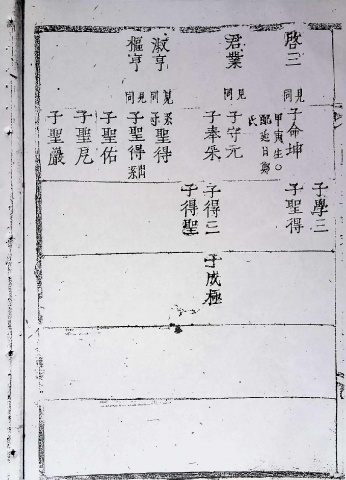 啓三
見同
子命坤
甲寅生
配延日鄭氏
子學三
子聖得
君業
見同
子守元
子奉采
子得二
子得聖
子成極
淑亨
見同
子聖得
樞亨
見同
子聖得
子聖佑
子聖尼
子聖嚴